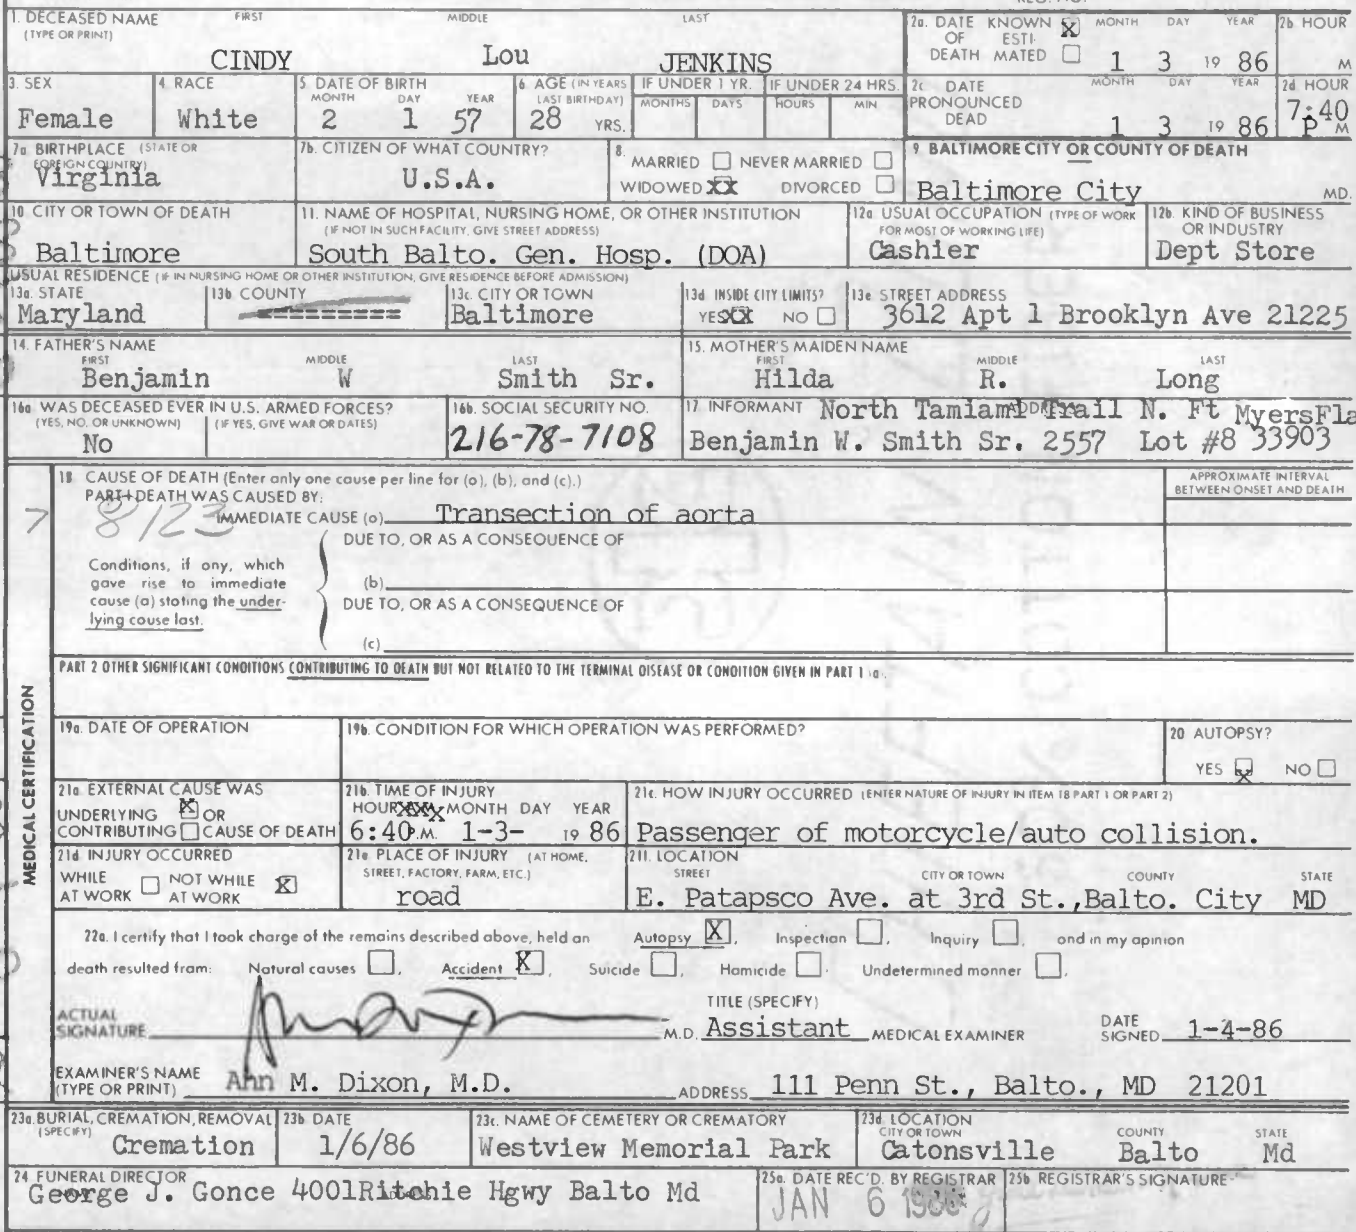 1. DECEASED NAME FIRST MIDDLE LAST
(TYPE OR PRINT)
CINDY Lou JENKINS
2a. DATE OF DEATH KNOWN X ESTIMATED MONTH DAY YEAR
1 3 19 86
2b HOUR
M
3. SEX
Female
4. RACE
White
5. DATE OF BIRTH
MONTH DAY YEAR
2 1 57
6. AGE (IN YEARS LAST BIRTHDAY)
28 YRS.
IF UNDER 1 YR.
MONTHS DAYS
IF UNDER 24 HRS.
HOURS MIN
2c. DATE PRONOUNCED DEAD MONTH DAY YEAR
1 3 19 86
2d HOUR
7:40
P M
7a. BIRTHPLACE (STATE OR FOREIGN COUNTRY)
Virginia
7b. CITIZEN OF WHAT COUNTRY?
U.S.A.
8.
MARRIED NEVER MARRIED
WIDOWED XX DIVORCED
9. BALTIMORE CITY OR COUNTY OF DEATH
Baltimore City MD.
10. CITY OR TOWN OF DEATH
Baltimore
11. NAME OF HOSPITAL, NURSING HOME, OR OTHER INSTITUTION
(IF NOT IN SUCH FACILITY, GIVE STREET ADDRESS)
South Balto. Gen. Hosp. (DOA)
12a. USUAL OCCUPATION (TYPE OF WORK FOR MOST OF WORKING LIFE)
Cashier
12b. KIND OF BUSINESS OR INDUSTRY
Dept Store
USUAL RESIDENCE (IF IN NURSING HOME OR OTHER INSTITUTION, GIVE RESIDENCE BEFORE ADMISSION)
13a. STATE
Maryland
13b. COUNTY
=========
13c. CITY OR TOWN
Baltimore
13d. INSIDE CITY LIMITS?
YES XX NO
13e STREET ADDRESS
3612 Apt 1 Brooklyn Ave 21225
14. FATHER'S NAME
FIRST MIDDLE LAST
Benjamin W Smith Sr.
15. MOTHER'S MAIDEN NAME
FIRST MIDDLE LAST
Hilda R. Long
16a. WAS DECEASED EVER IN U.S. ARMED FORCES?
(YES, NO, OR UNKNOWN) (IF YES, GIVE WAR OR DATES)
No
16b. SOCIAL SECURITY NO.
216-78-7108
17 INFORMANT ADDRESS
North Tamiami Trail N. Ft MyersFla
Benjamin W. Smith Sr. 2557 Lot #8 33903
MEDICAL CERTIFICATION
18 CAUSE OF DEATH (Enter only one cause per line for (a), (b), and (c).)
APPROXIMATE INTERVAL BETWEEN ONSET AND DEATH
PART I DEATH WAS CAUSED BY:
7
8123
IMMEDIATE CAUSE (a) Transection of aorta
DUE TO, OR AS A CONSEQUENCE OF
Conditions, if any, which
gave rise to immediate
cause (a) stating the under-
lying cause last.
(b)
DUE TO, OR AS A CONSEQUENCE OF
(c)
PART 2 OTHER SIGNIFICANT CONDITIONS CONTRIBUTING TO DEATH BUT NOT RELATED TO THE TERMINAL DISEASE OR CONDITION GIVEN IN PART 1 (a).
19a. DATE OF OPERATION
19b. CONDITION FOR WHICH OPERATION WAS PERFORMED?
20 AUTOPSY?
YES X NO
21a EXTERNAL CAUSE WAS
UNDERLYING X OR
CONTRIBUTING CAUSE OF DEATH
21b. TIME OF INJURY
HOUR XXXX MONTH DAY YEAR
6:40 P.M. 1-3- 19 86
21c. HOW INJURY OCCURRED (ENTER NATURE OF INJURY IN ITEM 18 PART 1 OR PART 2)
Passenger of motorcycle/auto collision.
21d INJURY OCCURRED
WHILE AT WORK NOT WHILE AT WORK X
21e PLACE OF INJURY (AT HOME, STREET, FACTORY, FARM, ETC.)
road
21f. LOCATION
STREET CITY OR TOWN COUNTY STATE
E. Patapsco Ave. at 3rd St.,Balto. City MD
22a. I certify that I took charge of the remains described above, held an Autopsy X, Inspection, Inquiry, and in my opinion
death resulted from: Natural causes, Accident X, Suicide, Homicide, Undetermined manner.
ACTUAL SIGNATURE M.D.
TITLE (SPECIFY)
Assistant MEDICAL EXAMINER
DATE SIGNED 1-4-86
EXAMINER'S NAME (TYPE OR PRINT) Ann M. Dixon, M.D.
ADDRESS 111 Penn St., Balto., MD 21201
23a. BURIAL, CREMATION, REMOVAL (SPECIFY)
Cremation
23b DATE
1/6/86
23c. NAME OF CEMETERY OR CREMATORY
Westview Memorial Park
23d. LOCATION
CITY OR TOWN COUNTY STATE
Catonsville Balto Md
24 FUNERAL DIRECTOR
George J. Gonce 4001Ritchie Hgwy Balto Md
25a. DATE REC'D. BY REGISTRAR
JAN 6 1986
25b REGISTRAR'S SIGNATURE